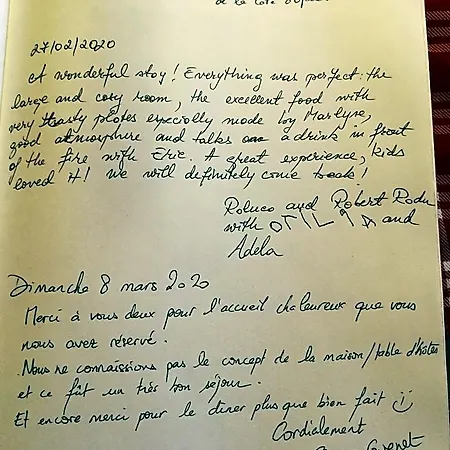 de la
27/02/2020
A wonderful stay! Everything was perfect: the
large and cosy room, the excellent food with
very tasty plates especially made by Marlyne,
good atmosphere and talks a drink in front
of the fire with Eric. A great experience, kids
loved it! We will definitely come back!
and Robert Radu
with OTILIA and
Adela
Dimanche 8 mars 2020
Merci à vous deux pour l'accueil chaleureux que vous
nous avez réservé.
Nous ne connaissions pas le concept de la maison/table d'hôtes
et ce fut un très bon séjour.
Et encore merci pour le dîner plus que bien fait :)
Cordialement